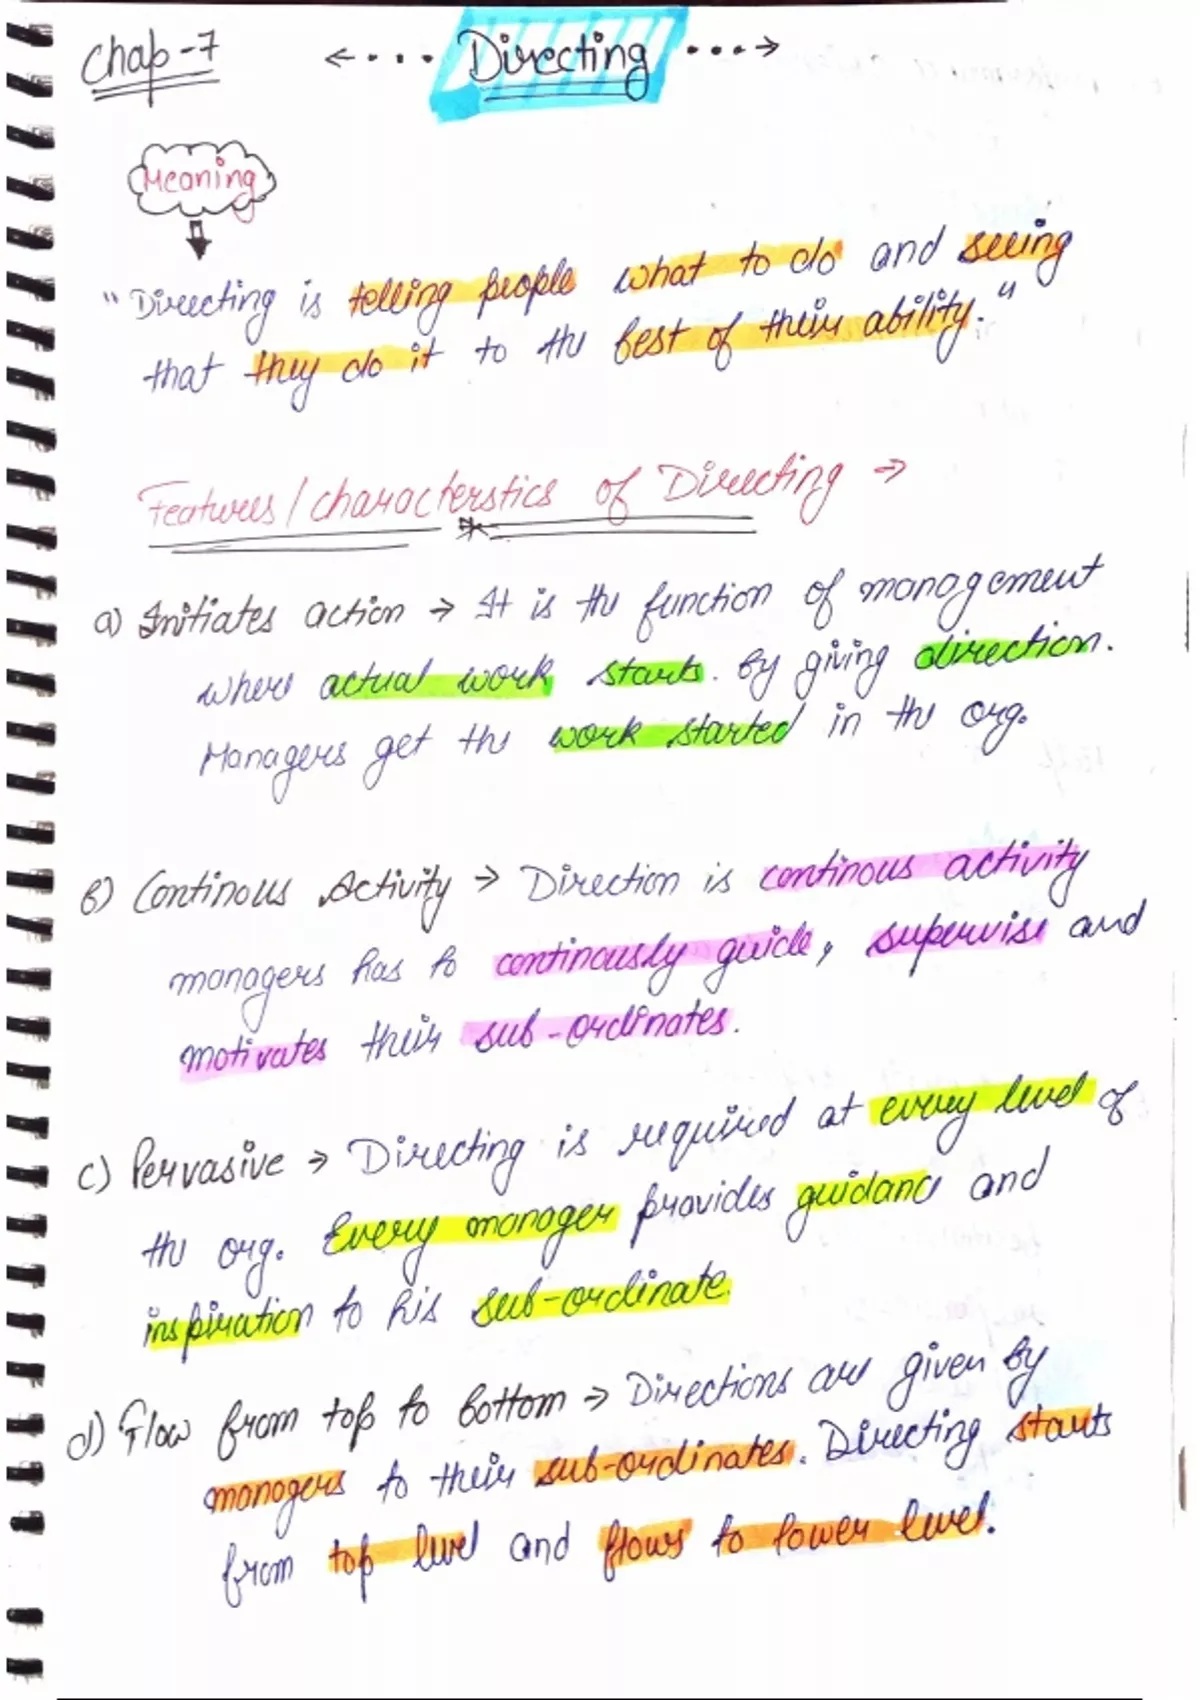 Chap-7 <---- Directing ---->
Meaning
"Directing is telling people what to do and seeing
that they do it to the best of their ability."
Features/characterstics of Directing →
a) Initiates action → It is the function of management
where actual work starts. By giving direction.
Managers get the work started in the org.
B) Continous Activity → Direction is continous activity
managers has to continously guide, supervise and
motivates their sub-ordinates.
c) Pervasive → Directing is required at every level of
the org. Every manager provides guidance and
inspiration to his sub-ordinate.
d) Flow from top to bottom → Directions are given by
managers to their sub-ordinates. Directing starts
from top level and flows to lower level.